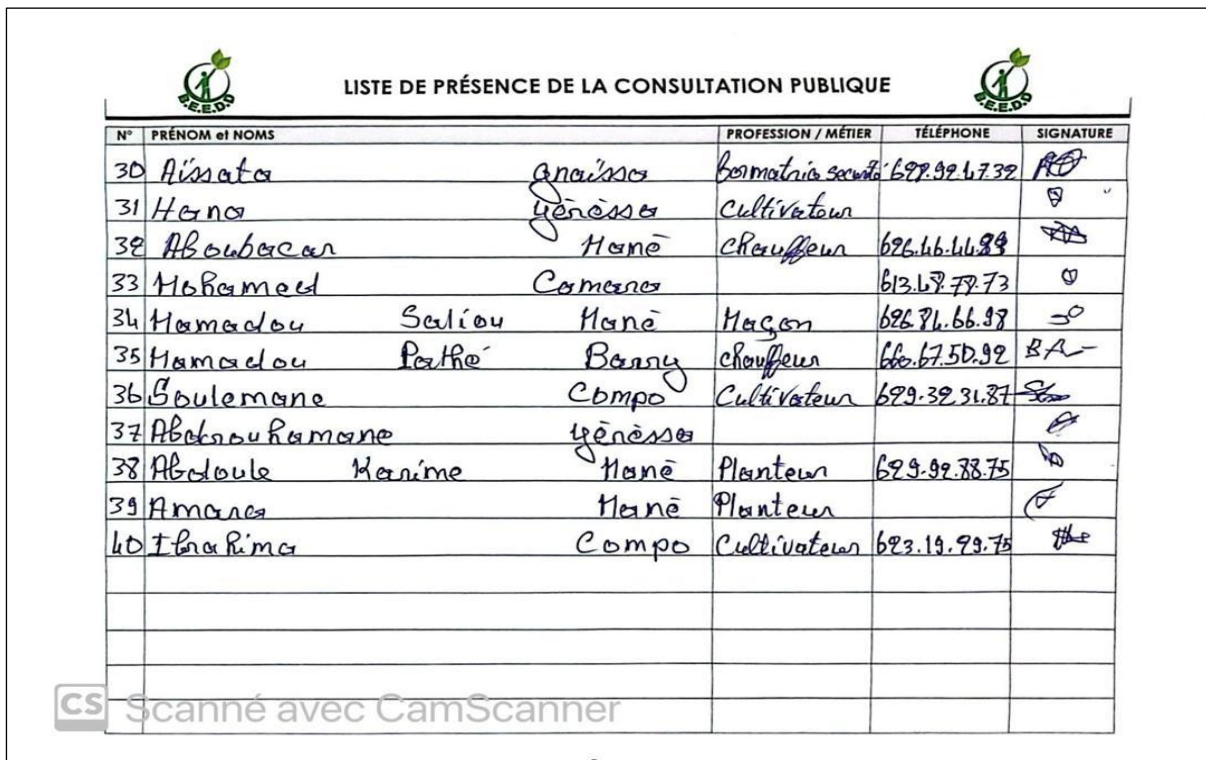 B.E.E.D.D LISTE DE PRÉSENCE DE LA CONSULTATION PUBLIQUE B.E.E.D.D
N° PRÉNOM et NOMS PROFESSION / MÉTIER TÉLÉPHONE SIGNATURE
30 Aïssata Gnaïssa formatrice securité
31 Hana Yérèssa Cultivateur
32 Aboubacar Manè Chauffeur 626.46.44.89
33 Mohamed Camara 613.48.78.73
34 Mamadou Saliou Manè Maçon 626.84.66.98
35 Mamadou Pathé Barry chauffeur 660.67.50.92 BA-
36 Soulemane Compo Cultivateur 629.32.31.87
37 Abdrouhamane Yérèssa
38 Abdoule Karime Manè Planteur 629.92.88.75
39 Amara Manè Planteur
40 Ibrahima Compo Cultivateur 623.19.99.75
CS Scanné avec CamScanner